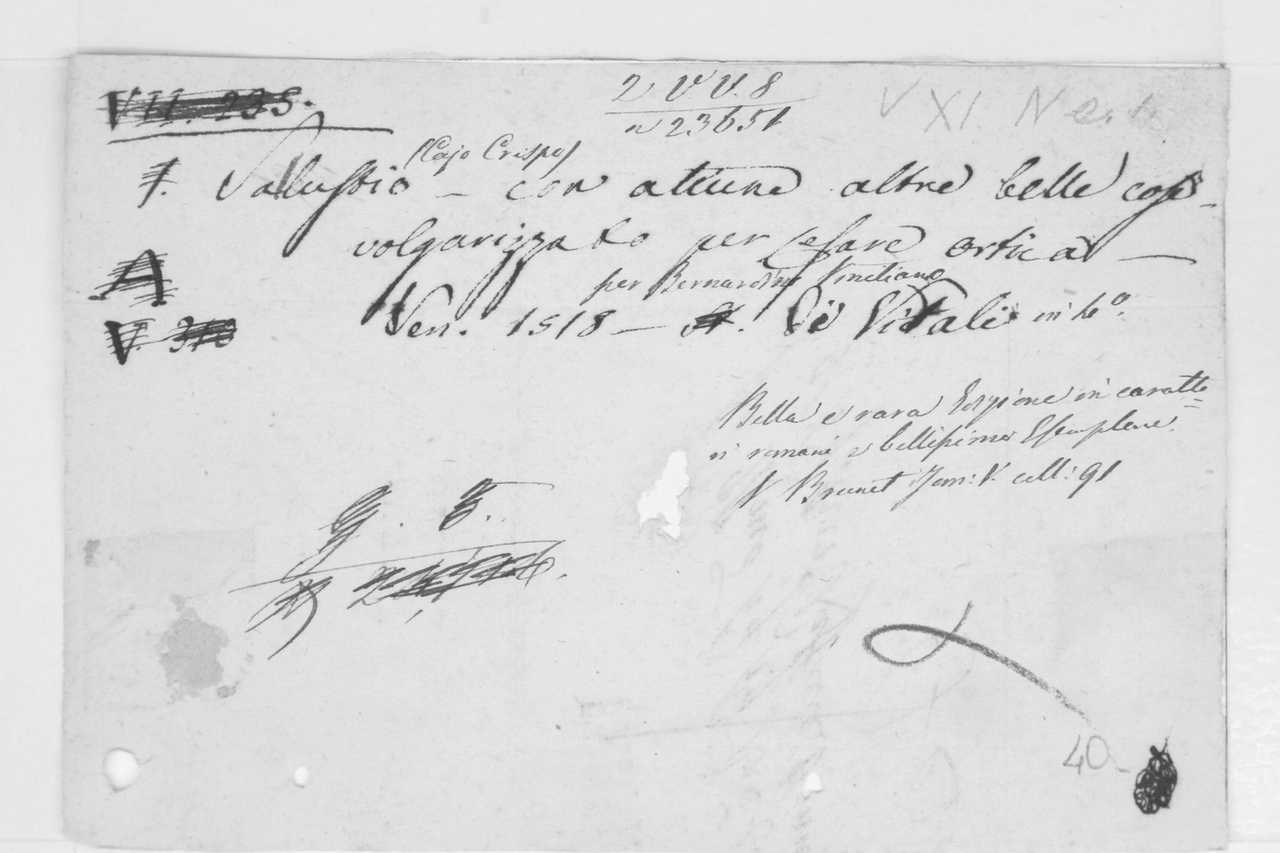 VII. 235.
2 V V. 8
n 23651
V XI N
(Cajo Crispo)
1. Sallustio — con alcune altre belle cose
volgarizzato per Cesare Ortica —
A
per Bernardino Venetiano
Ven. 1518 — De Vitali in 4º.
V.
Bella e rara Edizione in caratte=
ri romani e bellissimo Esemplare.
V Brunet Tom: V. coll: 91
G. 3.
40-